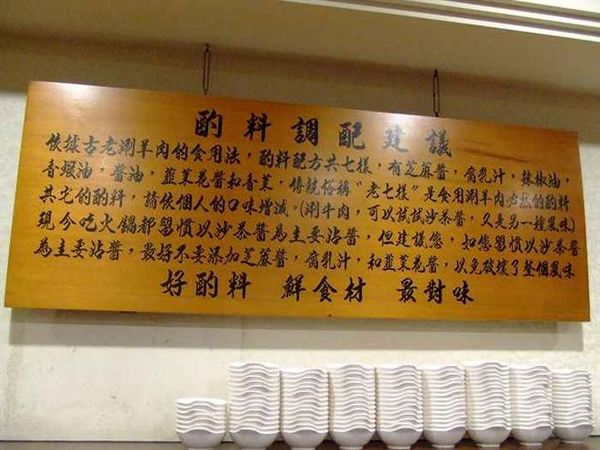 酌料調配建議
依據古老涮羊肉的食用法，酌料配方共七樣，有芝蔴醬，腐乳汁，辣椒油，
香蝦油，醬油，韮菜花醬和香菜，傳統俗稱“老七樣”是食用涮羊肉必然的酌料
其它的酌料，請依個人的口味增減。(涮牛肉，可以試試沙茶醬，又是另一種風味)
現今吃火鍋都習慣以沙茶醬為主要沾醬，但建議您，如您習慣以沙茶醬
為主要沾醬，最好不要添加芝蔴醬，腐乳汁，和韮菜花醬，以免破壞了整個風味
好酌料 鮮食材 最對味